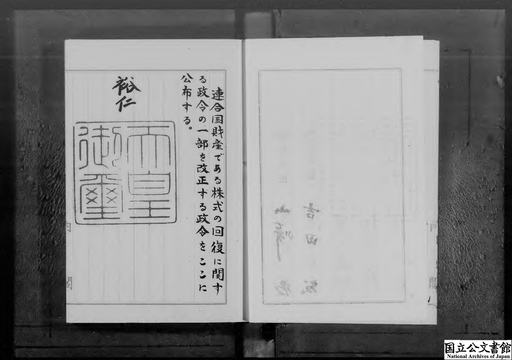 連合国財産である株式の回復に関す
る政令の一部を改正する政令をここに
公布する。
裕仁
天皇
御璽
内閣
国立公文書館
National Archives of Japan